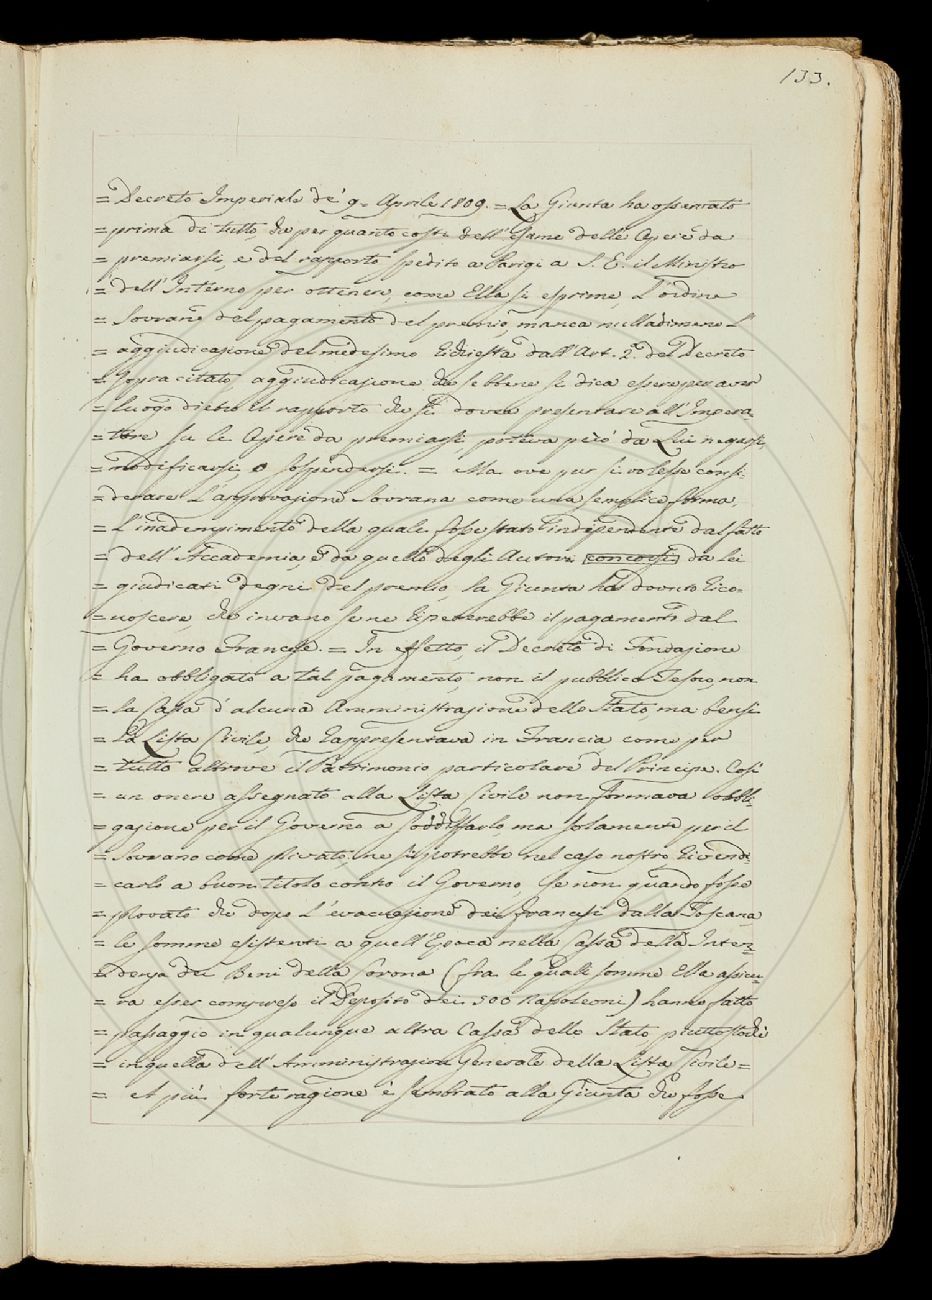 133.
= Decreto Imperiale de' 9. Aprile 1809. = La Giunta ha osservato
= prima di tutto, che per quanto costi dell'Esame delle Opere da
= premiarsi, e del rapporto spedito a Parigi a S. E. il Ministro
= dell'Interno per ottenere, come Ella si esprime, l'ordine
= Sovrano del pagamento del premio, manca nulladimeno l'
= aggiudicazione del medesimo richiesta dall'Art. 2.° del Decreto
= Sopracitato, aggiudicazione che sebbene si dica essere per aver
= luogo dietro il rapporto che si dovea presentare all'Impera-
= tore su le Opere da premiarsi, poteva però da Lui negarsi,
= modificarsi o sospendersi. = Ma ove pur si volesse consi-
= derare l'approvazione Sovrana come una semplice forma,
= l'inadempimento della quale fosse stato independente dal fatto
= dell'Accademia, e da quello degli Autori concorsi da lei
= giudicati degni del premio la Giunta ha dovuto rico-
= noscere, che invano se ne ripeterebbe il pagamento dal
= Governo Francese. = In effetto, il Decreto di Fondazione
= ha obbligato a tal pagamento, non il pubblico Tesoro, non
= la Cassa d'alcuna Amministrazione dello Stato, ma bensì
= la Lista Civile, che rappresentava in Francia, come per
= tutto altrove il Patrimonio particolare del Principe. Così
= un onere assegnato alla Lista Civile non formava obbli-
= gazione per il Governo a soddisfarlo, ma solamente per il
= Sovrano come privato, ne si potrebbe nel caso nostro rivendi-
= carlo a buon titolo contro il Governo, se non quando fosse
= provato che dopo l'evacuazione dei francesi dalla Toscana,
= le somme esistenti a quell'Epoca nella Cassa della Inten-
= denza dei Beni della Corona (fra le quali somme Ella assicu-
= ra esser compreso il Deposito dei 500 Napoleoni) hanno fatto
= passaggio in qualunque altra Cassa dello Stato, piuttostochè
= in quella dell'Amministrazione Generale della Lista Civile =
= et più forte ragione è sembrato alla Giunta che fosse